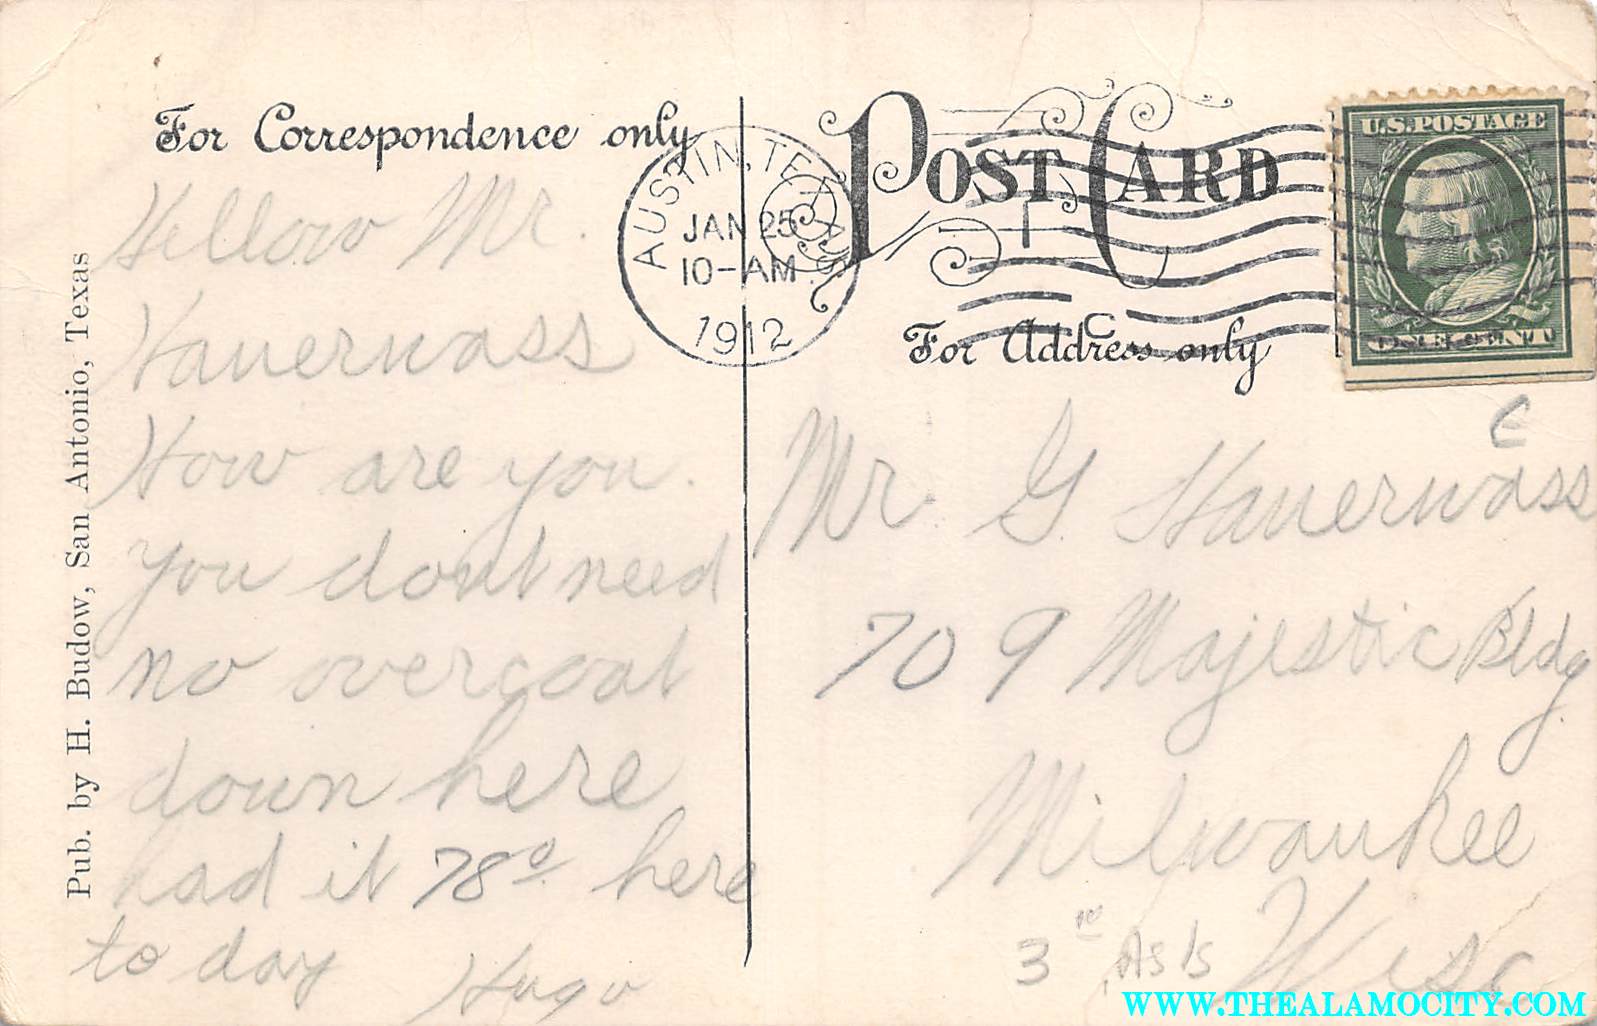 For Correspondence only
Hellow Mr.
Hauerwass
How are you.
you dont need
no overcoat
down here
had it 78° here
to day Hugo
Pub. by H. Budow, San Antonio, Texas
AUSTIN, TEXAS.
JAN 25
10-AM
1912
POST CARD
For Address only
U.S. POSTAGE
ONE CENT
C
Mr G. Hauerwass
709 Majestic Bldg
Milwaukee
Wisc
3
WWW.THEALAMOCITY.COM